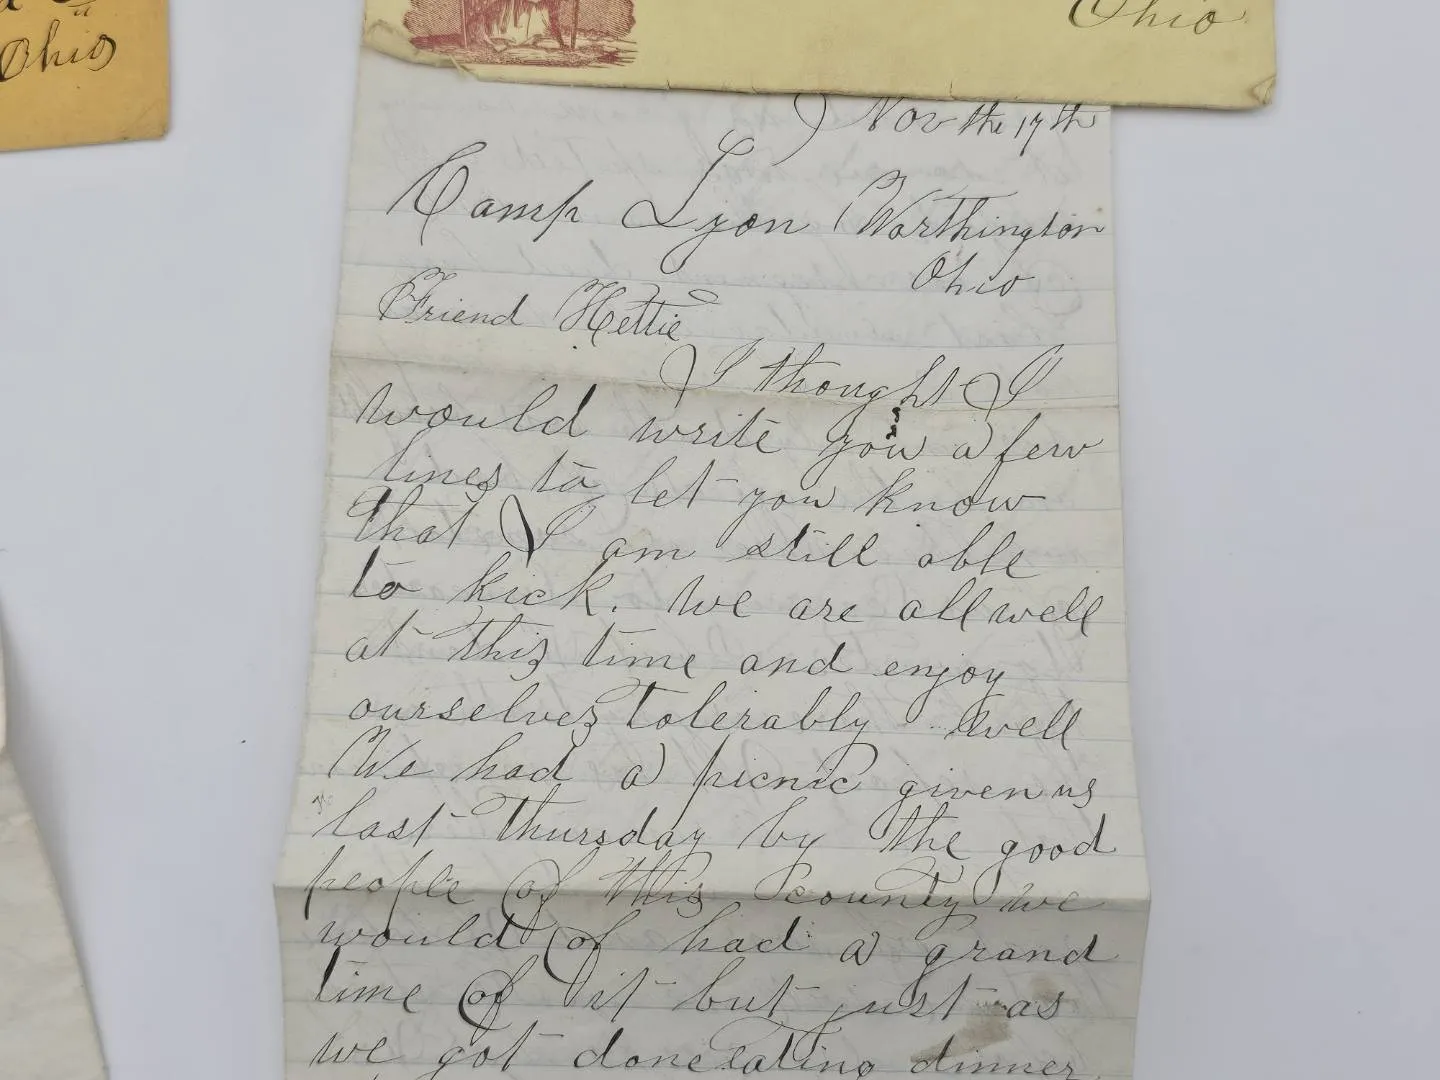 Ohio
Ohio
Nov the 17th
Camp Lyon Worthington
Ohio
Friend Hettie
I thought I
would write you a few
lines to let you know
that I am still able
to kick. We are all well
at this time and enjoy
ourselves tolerably well
We had a picnic given us
last Thursday by the good
people of this county we
would of had a grand
time of it but just as
we got done eating dinner